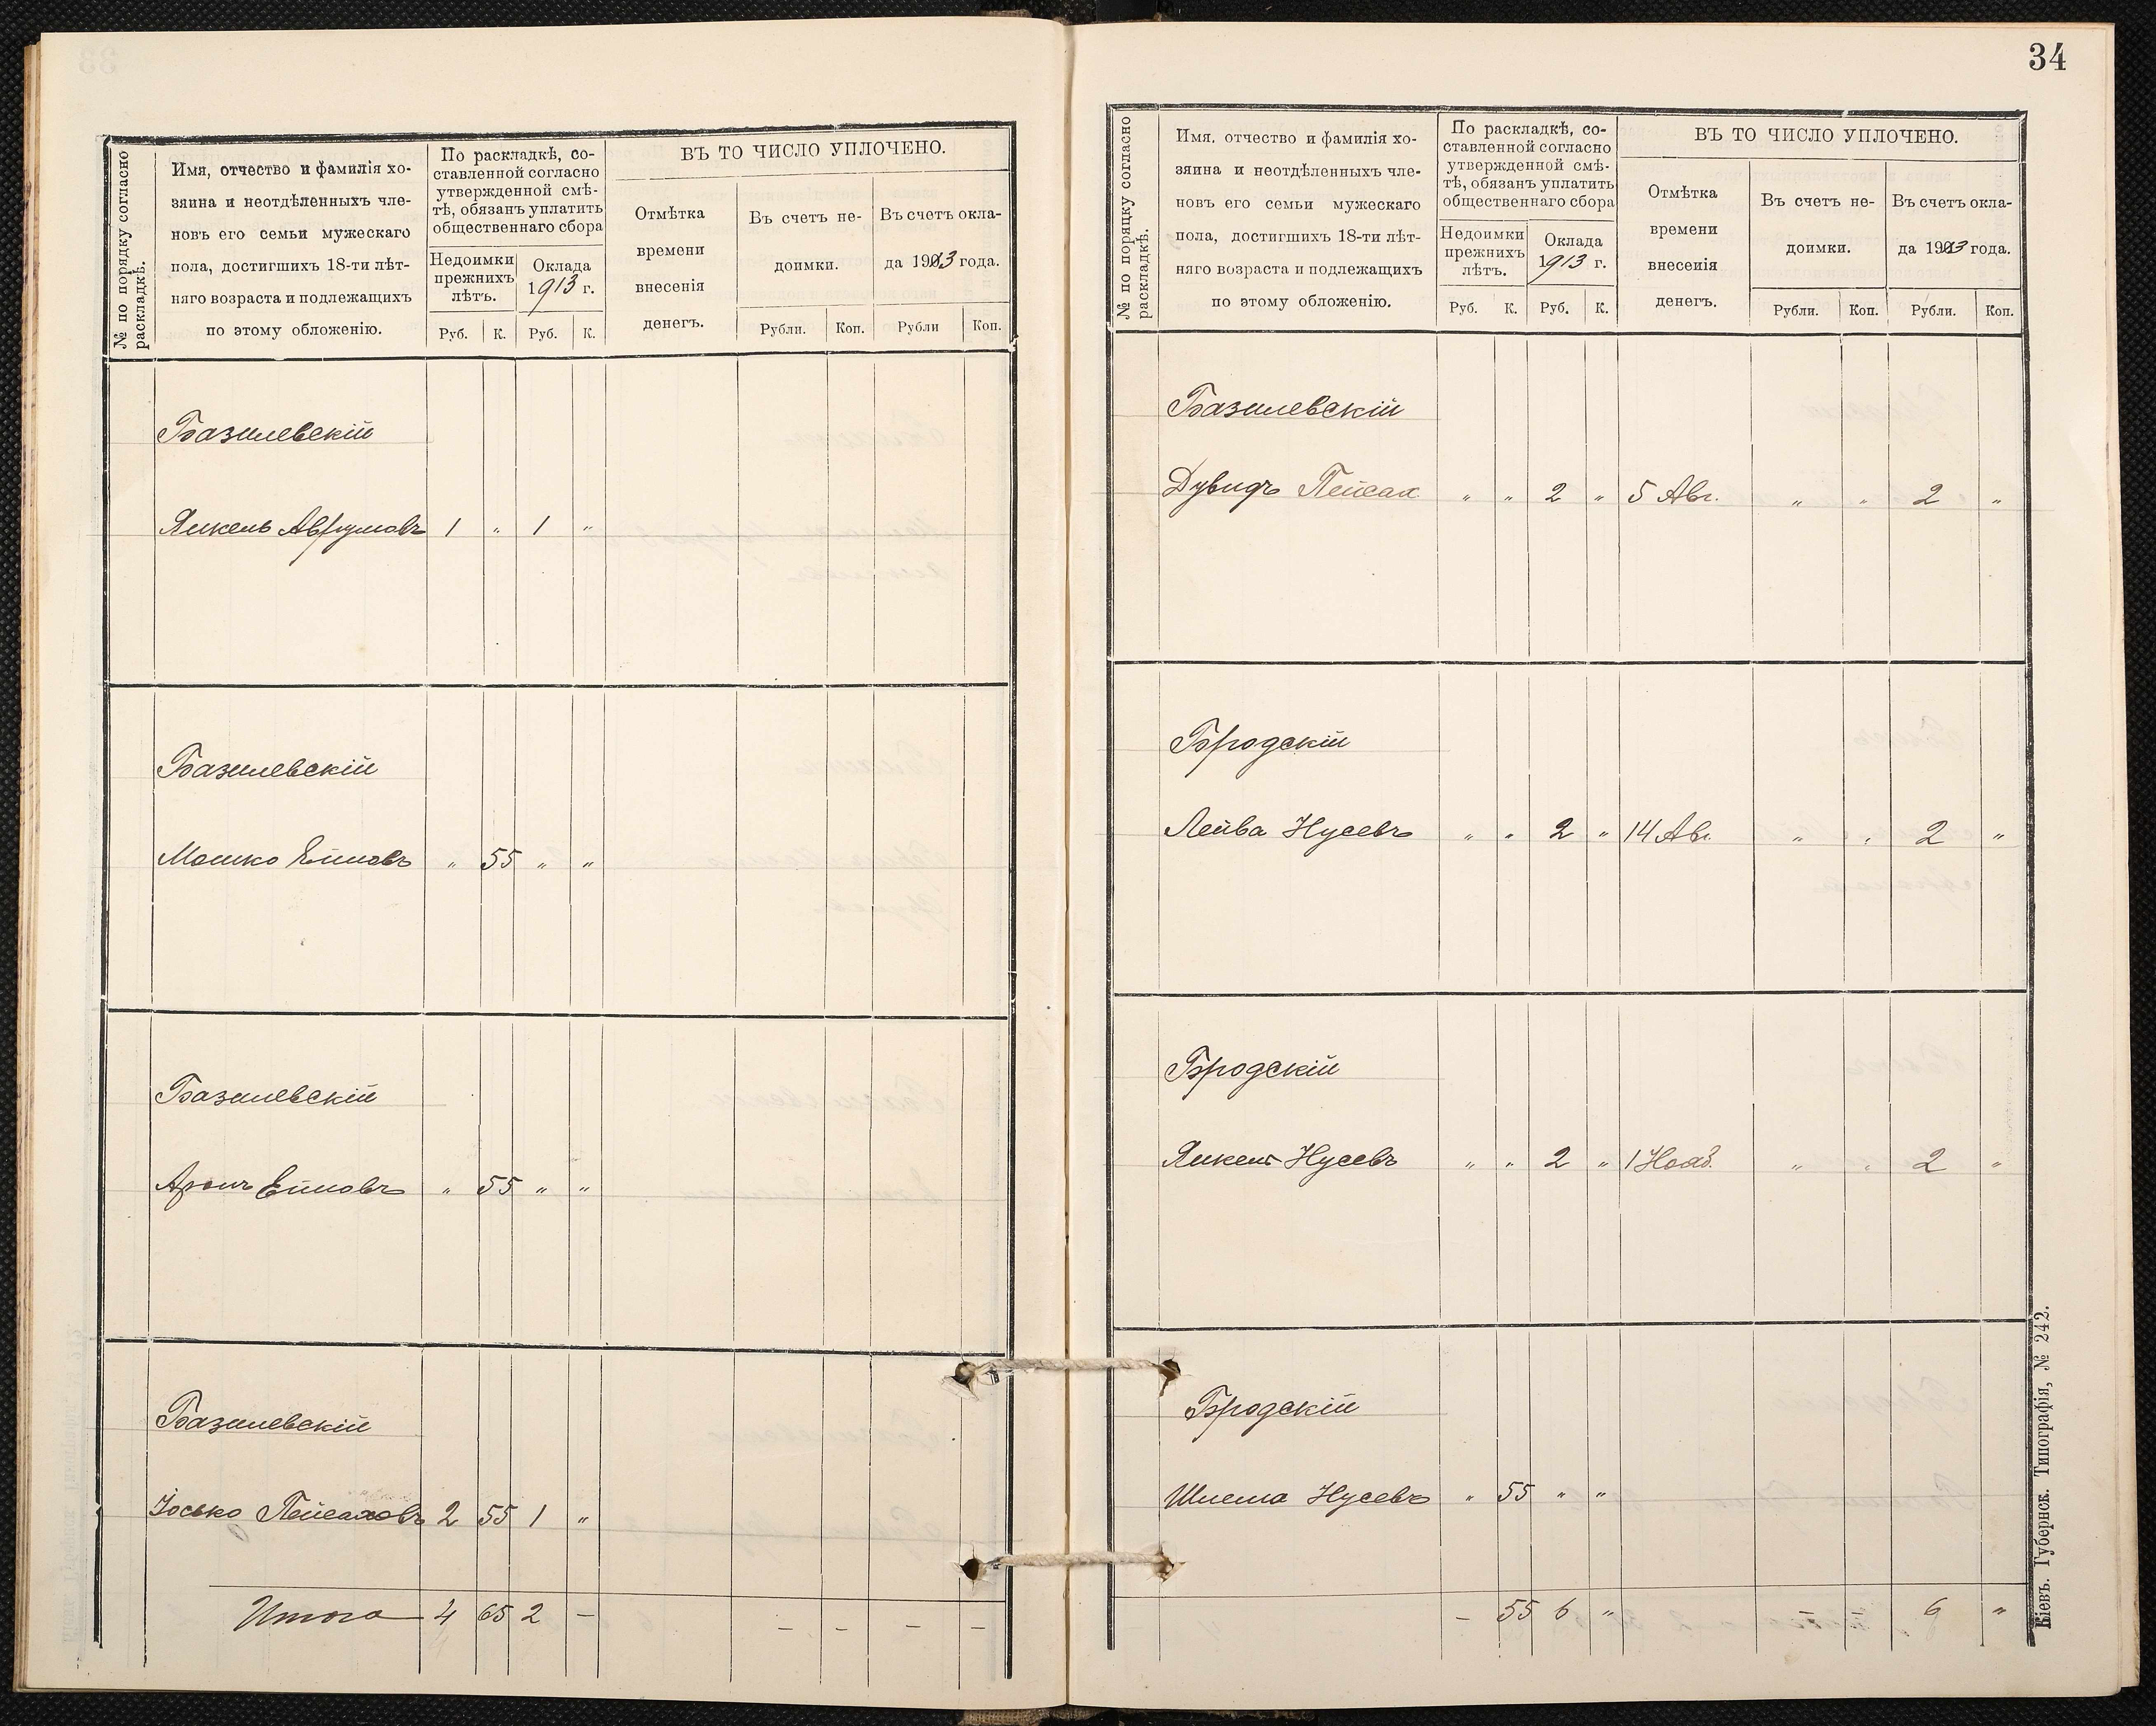 № по порядку согласно
раскладкѣ.
Имя, отчество и фамилія хо-
зяина и неотдѣленныхъ чле-
новъ его семьи мужескаго
пола, достигшихъ 18-ти лѣт-
няго возраста и подлежащихъ
по этому обложенію.
По раскладкѣ, со-
ставленной согласно
утвержденной смѣ-
тѣ, обязанъ уплатить
общественнаго сбора
Недоимки
прежнихъ
лѣтъ.
Оклада
1913 г.
Руб. К. Руб. К.
ВЪ ТО ЧИСЛО УПЛОЧЕНО.
Отмѣтка
времени
внесенія
денегъ.
Въ счетъ не-
доимки.
Въ счетъ окла-
да 1913 года.
Рубли. Коп. Рубли Коп.
Базилевскій
Янкель Аврумовъ 1 " 1 "
Базилевскій
Мошко Ейновъ " 55 " "
Базилевскій
Аронъ Ейновъ " 55 " "
Базилевскій
Іосько Пейсаховъ 2 55 1 "
Итого 4 65 2 — — — — —
34
№ по порядку согласно
раскладкѣ.
Имя, отчество и фамилія хо-
зяина и неотдѣленныхъ чле-
новъ его семьи мужескаго
пола, достигшихъ 18-ти лѣт-
няго возраста и подлежащихъ
по этому обложенію.
По раскладкѣ, со-
ставленной согласно
утвержденной смѣ-
тѣ, обязанъ уплатить
общественнаго сбора
Недоимки
прежнихъ
лѣтъ.
Оклада
1913 г.
Руб. К. Руб. К.
ВЪ ТО ЧИСЛО УПЛОЧЕНО.
Отмѣтка
времени
внесенія
денегъ.
Въ счетъ не-
доимки.
Въ счетъ окла-
да 1913 года.
Рубли. Коп. Рубли. Коп.
Базилевскій
Дувидъ Пейсах. " " 2 " 5 Авг. " " 2 "
Бродскій
Лейва Нусевъ " " 2 " 14 Авг. " " 2 "
Бродскій
Янкель Нусевъ " " 2 " 1 Нояб. " " 2 "
Бродскій
Шлема Нусевъ " 55 " "
— 55 6 " — — 6 "
Кіевъ. Губернск. Типографія, № 242.